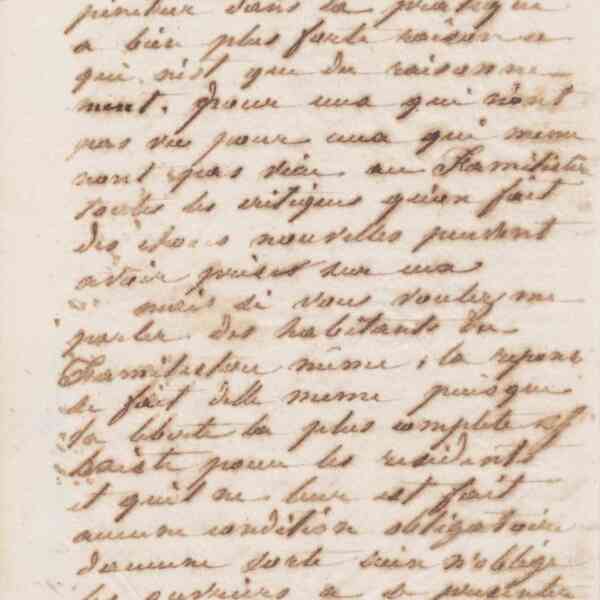 pénétrer dans la pratique
a bien plus forte raison a
qui nist que du raisonne
ment. pour ceux qui n'ont
pas vu pour ceux qui meme
nont pas vécu au Familistère
toutes les critiques qu'on fait
des choses nouvelles peuvent
avoir prises sur eux
mais si vous voulez me
parler des habitants du
Familistère même, la repons
se fait delle meme puisque
la liberté la plus complete est
laisse pour les residents
et quil ne leur est fait
aucune condition obligatoire
daucune sorte rien n'oblige
les ouvriers a se presenter